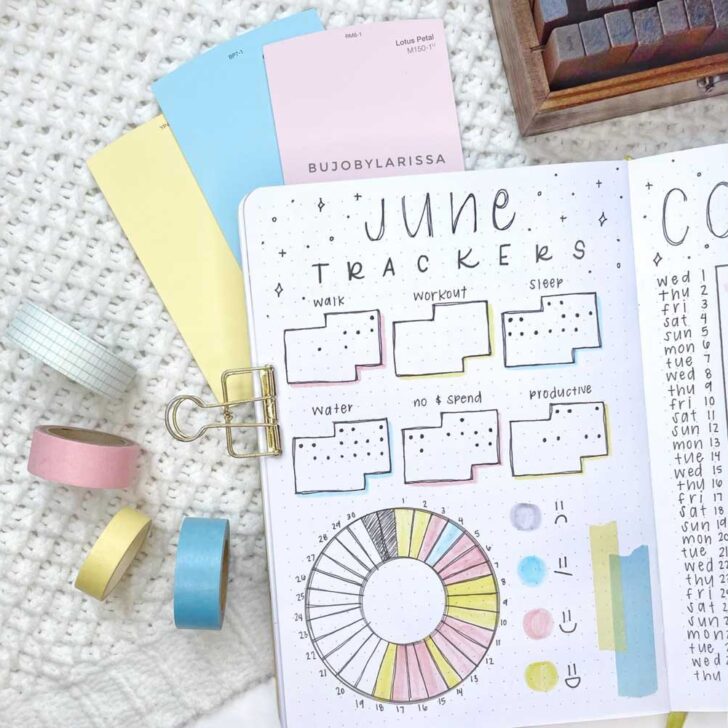 RM6-1
Lotus Petal
M150-1
BP7-1
BUJOBYLARISSA
JUNE
TRACKERS
walk
workout
sleep
water
no $ spend
productive
1
2
3
4
5
6
7
8
9
10
11
12
13
14
15
16
17
18
19
20
21
22
23
24
25
26
27
28
29
30
CO
wed 1
thu 2
fri 3
sat 4
sun 5
mon 6
tue 7
wed 8
thu 9
fri 10
sat 11
sun 12
mon 13
tue 14
wed 15
thu 16
fri 17
sat 18
sun 19
mon 20
tue 21
wed 22
thu 23
fri 24
sat 25
sun 26
mon 27
tue
wed
thu